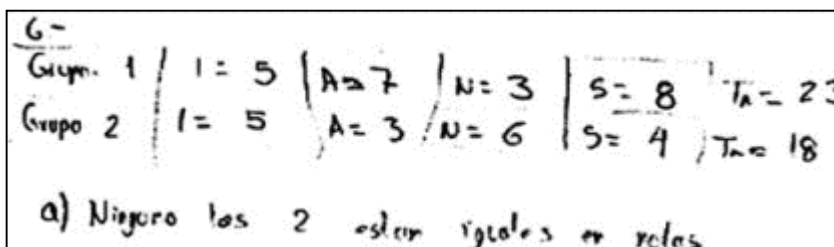 6-
Grupo 1 I = 5 A = 7 N = 3 S = 8 Tn = 23
Grupo 2 I = 5 A = 3 N = 6 S = 4 Tn = 18
a) Ninguno los 2 estan iguales en notas